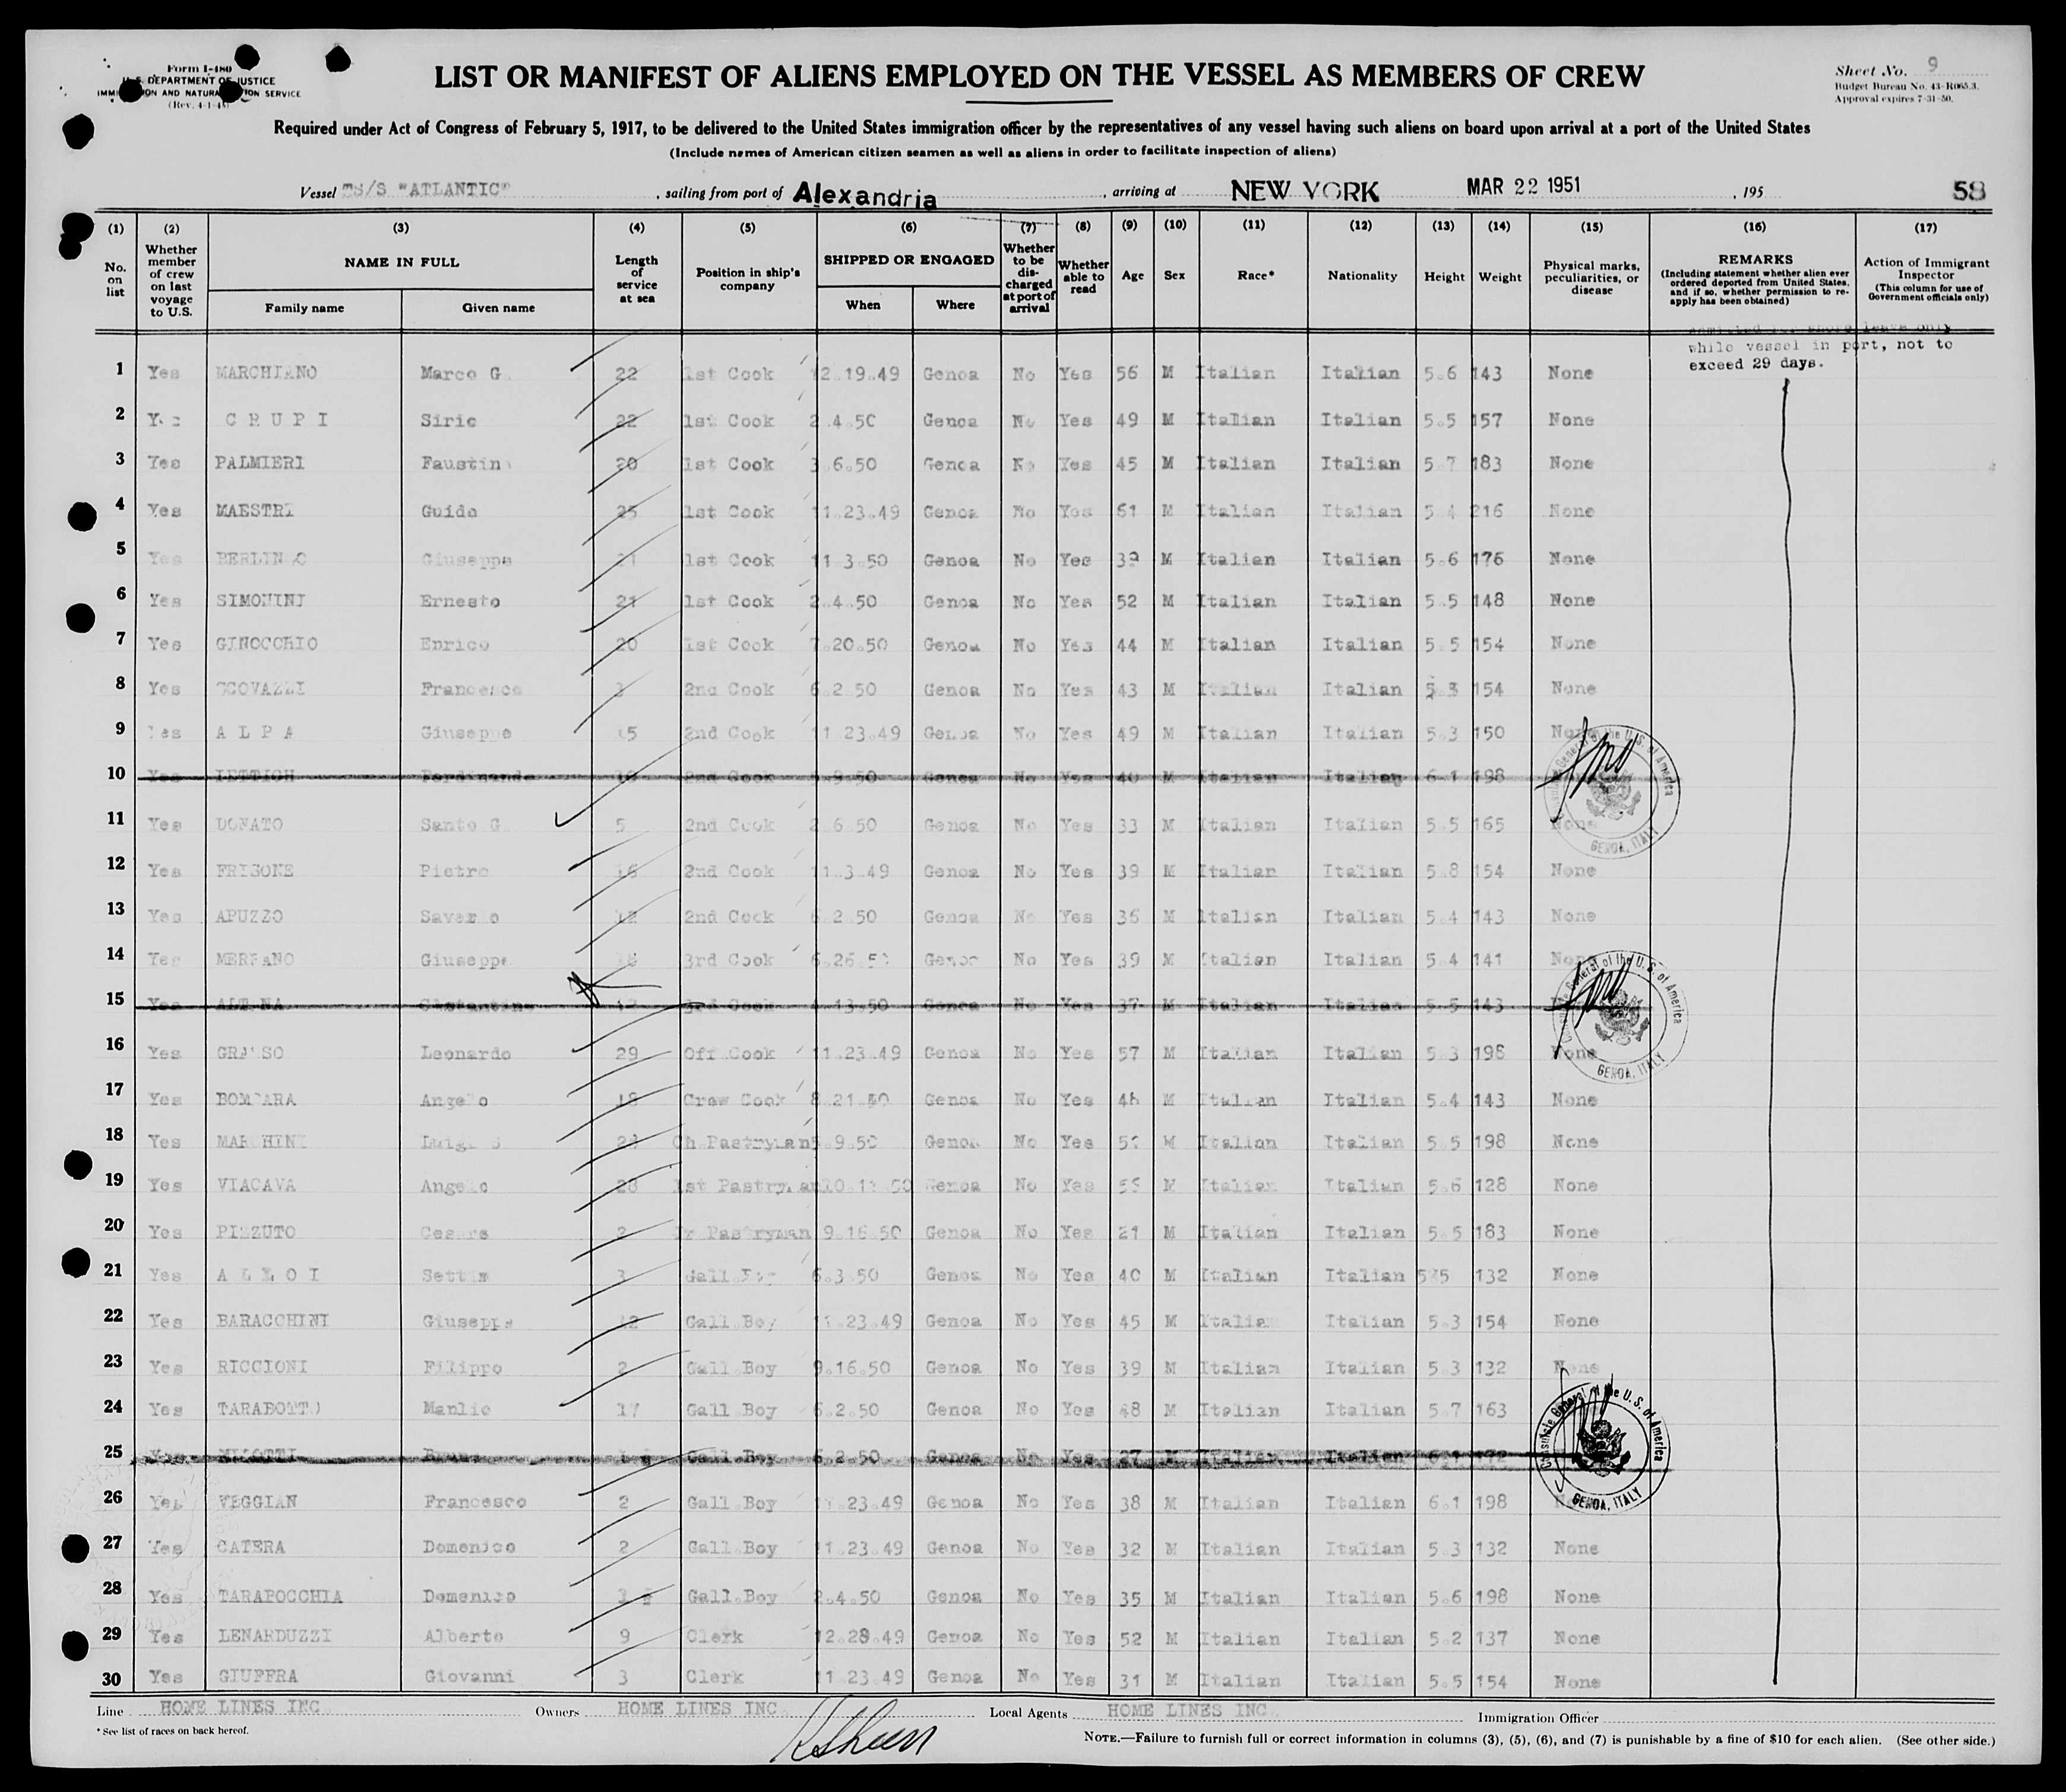 Form I-480
U. S. DEPARTMENT OF JUSTICE
IMMIGRATION AND NATURALIZATION SERVICE
(Rev. 4-1-48)
LIST OR MANIFEST OF ALIENS EMPLOYED ON THE VESSEL AS MEMBERS OF CREW
Sheet No. 9
Budget Bureau No. 43-R065.3.
Approval expires 7-31-50.
Required under Act of Congress of February 5, 1917, to be delivered to the United States immigration officer by the representatives of any vessel having such aliens on board upon arrival at a port of the United States
(Include names of American citizen seamen as well as aliens in order to facilitate inspection of aliens)
Vessel TS/S "ATLANTIC" , sailing from port of Alexandria , arriving at NEW YORK MAR 22 1951 , 195 58
(1) (2) (3) (4) (5) (6) (7) (8) (9) (10) (11) (12) (13) (14) (15) (16) (17)
No. on list Whether member of crew on last voyage to U.S. NAME IN FULL Family name Given name Length of service at sea Position in ship's company SHIPPED OR ENGAGED When Where Whether to be discharged at port of arrival Whether able to read Age Sex Race* Nationality Height Weight Physical marks, peculiarities, or disease REMARKS (Including statement whether alien ever ordered deported from United States, and if so, whether permission to reapply has been obtained) Action of Immigrant Inspector (This column for use of Government officials only)
admitted for shore leave only
while vessel in port, not to
exceed 29 days.
1 Yes MARCHIANO Marco G. 22 1st Cook 12.19.49 Genoa No Yes 56 M Italian Italian 5.6 143 None
2 Yes C R U P I Siric 22 1st Cook 2.4.50 Genoa No Yes 49 M Italian Italian 5.5 157 None
3 Yes PALMIERI Faustin 20 1st Cook 3.6.50 Genoa No Yes 45 M Italian Italian 5.7 183 None
4 Yes MAESTRI Guido 25 1st Cook 11.23.49 Genoa No Yes 51 M Italian Italian 5.4 216 None
5 Yes Giuseppe 1st Cook 11.3.50 Genoa No Yes 39 M Italian Italian 5.6 176 None
6 Yes SIMONINI Ernesto 21 1st Cook 2.4.50 Genoa No Yes 52 M Italian Italian 5.5 148 None
7 Yes GINOCCHIO Enrico 20 1st Cook 7.20.50 Genoa No Yes 44 M Italian Italian 5.5 154 None
8 Yes SCOVAZZI Francesco 3 2nd Cook 6.2.50 Genoa No Yes 43 M Italian Italian 5.3 154 None
9 Yes A L P A Giuseppe 15 2nd Cook 11.23.49 Genoa No Yes 49 M Italian Italian 5.3 150 None
10 Yes Ferdinando 2nd Cook 9.50 Genoa No Yes 40 M Italian Italian 6.1 198
11 Yes DONATO Santo G. 5 2nd Cook 2.6.50 Genoa No Yes 33 M Italian Italian 5.5 165 None
12 Yes FRISONE Pietro 16 2nd Cook 11.3.49 Genoa No Yes 39 M Italian Italian 5.8 154 None
13 Yes APUZZO Saverio 12 2nd Cook 6.2.50 Genoa No Yes 36 M Italian Italian 5.4 143 None
14 Yes Giuseppe 3rd Cook 6.26.50 Genoa No Yes 39 M Italian Italian 5.4 141 None
15 Yes 12 3rd Cook 4.13.50 Genoa No Yes 37 M Italian Italian 5.5 143
16 Yes GRASSO Leonardo 29 Off.Cook 11.23.49 Genoa No Yes 57 M Italian Italian 5.3 198 None
17 Yes BOMPARA Angelo 18 Crew Cook 8.21.50 Genoa No Yes 48 M Italian Italian 5.4 143 None
18 Yes MARCHINI Luigi S 28 Ch.Pastryman 5.9.50 Genoa No Yes M Italian Italian 5.5 198 None
19 Yes VIACAVA Angelo 28 1st Pastryman 10.11.50 Genoa No Yes M Italian Italian 5.6 128 None
20 Yes PIZZUTO Cesare 2 Jr Pastryman 9.16.50 Genoa No Yes 21 M Italian Italian 5.5 183 None
21 Yes A L L O I Settim 3 Gall.Boy 6.3.50 Genoa No Yes 40 M Italian Italian 5.5 132 None
22 Yes BARACCHINI Giuseppe 12 Gall.Boy 11.23.49 Genoa No Yes 45 M Italian Italian 5.3 154 None
23 Yes RICCIONI Filippo 2 Gall.Boy 9.16.50 Genoa No Yes 39 M Italian Italian 5.3 132 None
24 Yes TARABOTTO Manlio 17 Gall.Boy 6.2.50 Genoa No Yes 48 M Italian Italian 5.7 163
25 Yes Bruno Gall.Boy 6.2.50 Genoa No Yes 27 M Italian Italian 6.1 172
26 Yes VEGGIAN Francesco 2 Gall.Boy 11.23.49 Genoa No Yes 38 M Italian Italian 6.1 198
27 Yes CATERA Domenico 2 Gall.Boy 11.23.49 Genoa No Yes 32 M Italian Italian 5.3 132 None
28 Yes TARABOCCHIA Domenico 3 Gall.Boy 2.4.50 Genoa No Yes 35 M Italian Italian 5.6 198 None
29 Yes LENARDUZZI Alberto 9 Clerk 12.28.49 Genoa No Yes 52 M Italian Italian 5.2 137 None
30 Yes GIUFFRA Giovanni 3 Clerk 11.23.49 Genoa No Yes 31 M Italian Italian 5.5 154 None
Consulate General of the U. S. of America GENOA, ITALY
Consulate General of the U. S. of America GENOA, ITALY
Consulate General of the U. S. of America GENOA, ITALY
Line HOME LINES INC. Owners HOME LINES INC. Local Agents HOME LINES INC. Immigration Officer
* See list of races on back hereof.
NOTE.—Failure to furnish full or correct information in columns (3), (5), (6), and (7) is punishable by a fine of $10 for each alien. (See other side.)